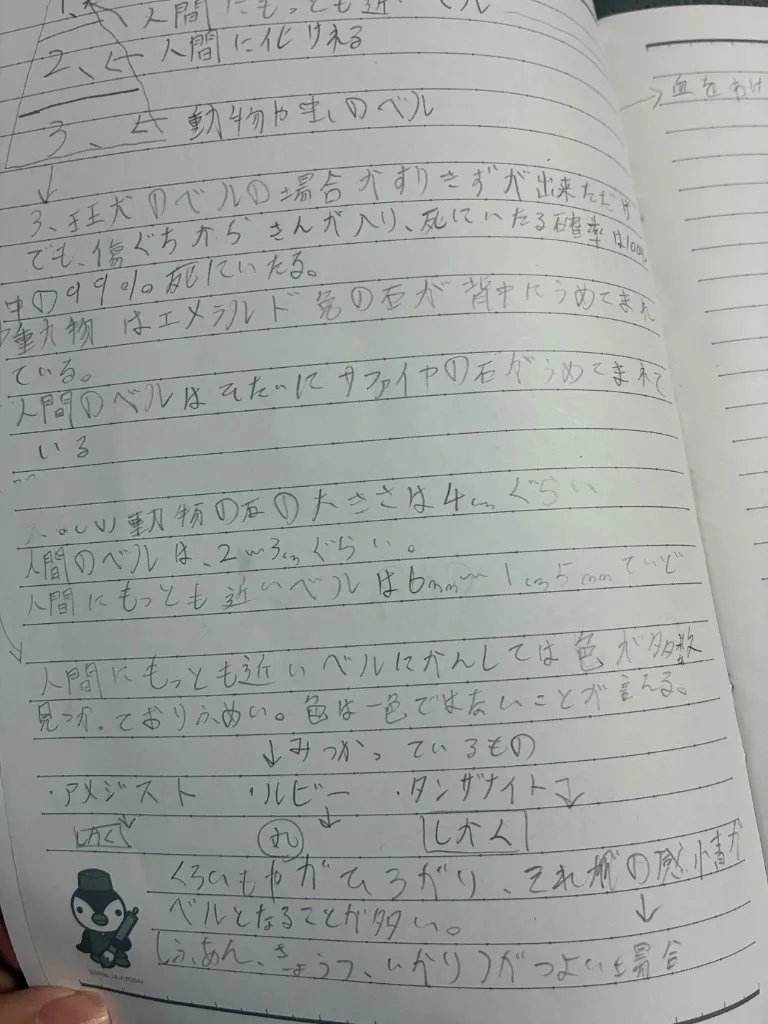 人間にもっとも近い
2、← 人間に化けれる
3、← 動物や虫のベル
→血をわけ
3、狂犬のベルの場合かすりきずが出来ただけ
でも、傷ぐちからきんが入り、死にいたる確率は100%
中の99%死にいたる。
動物はエメラルド色の石が背中にうめてまれ
ている。
人間のベルはひたいにサファイヤの石がうめてまれて
いる
動物の石の大きさは4cmぐらい
人間のベルは、2〜3cmぐらい。
人間にもっとも近いベルは6mm〜1cm5mmていど
人間にもっとも近いベルにかんしては色が多数
見つかっておりふめい。色は一色ではないことが言える。
↓みつかっているもの
・アメジスト ・ルビー ・タンザナイト
しかく 丸 しかく
くろいもやがひろがり、それぞれの感情が
ベルとなることが多い。
しっ、あん、きょうふ、いかりがつよい場合